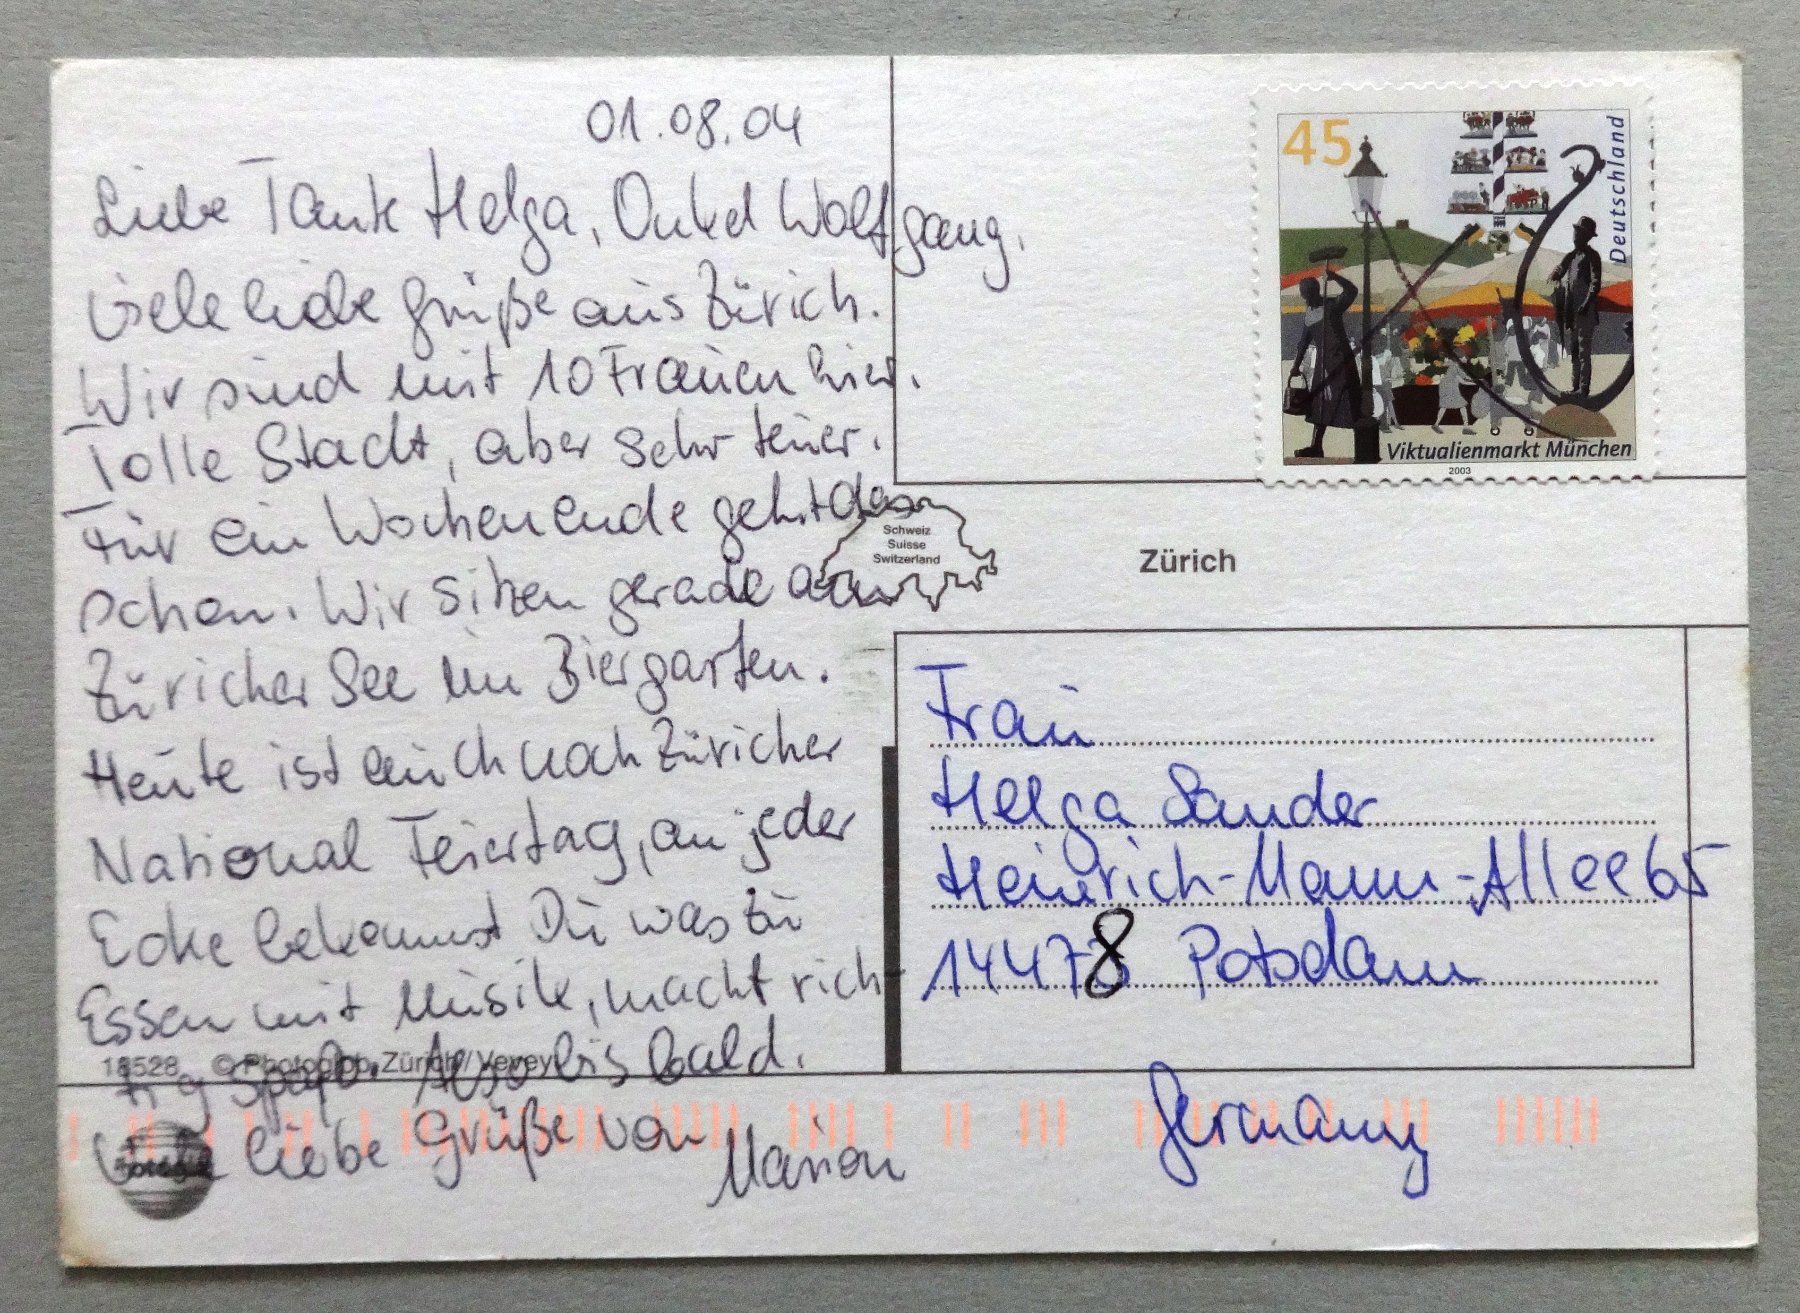 01.08.04
Liebe Tante Helga, Onkel Wolfgang,
Viele liebe Grüße aus Zürich.
Wir sind mit 10 Frauen hier.
Tolle Stadt, aber sehr teuer.
Für ein Wochenende geht das
schon. Wir sitzen gerade am
Züricher See im Biergarten.
Heute ist auch noch Züricher
National Feiertag, an jeder
Ecke bekommst Du was zu
Essen mit Musik, macht rich-
tig Spaß. Also bis bald.
Viele liebe Grüße von
Marion
18528 © Photoglob, Zürich/Vevey
45
Deutschland
Viktualienmarkt München
2003
Schweiz
Suisse
Switzerland
Zürich
Frau
Helga Sander
Heinrich-Mann-Allee 65
14478 Potsdam
Germany